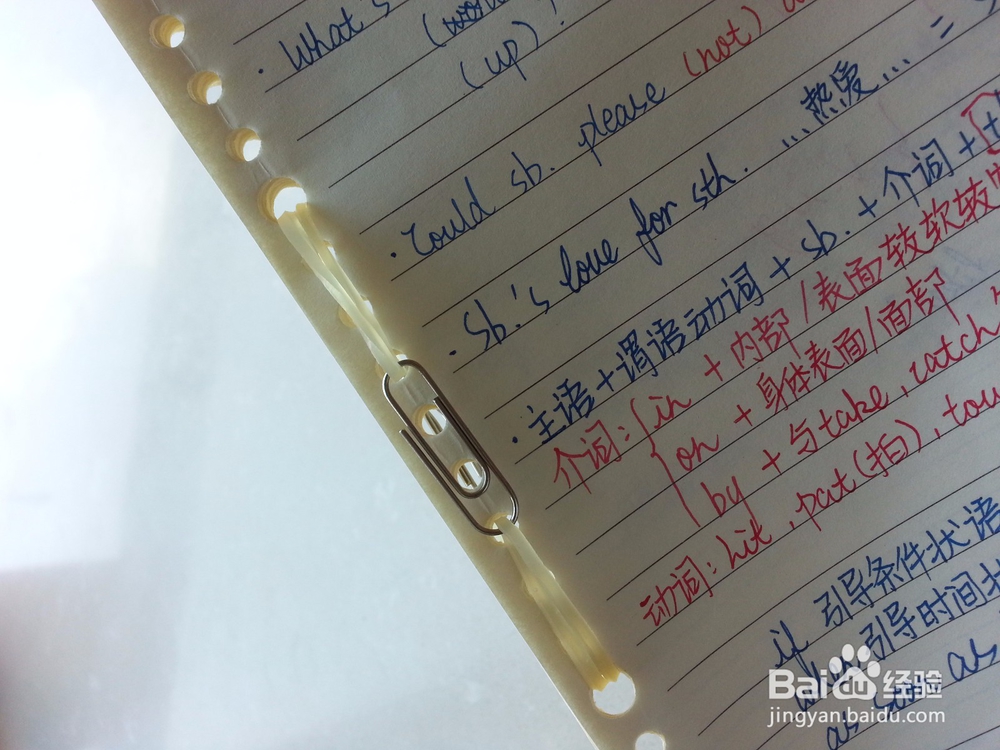 · What's
(up)?
· Could sb. please (not)
· sb.'s love for sth. ...热爱...
· 主语+谓语动词+sb.+介词+
介词: in +内部/表面较软较
on +身体表面/面部
by +与take, catch
动词: hit, pat(拍), tou
if 引导条件状语
引导时间状
as soon as
Baidu 经验
jingyan.baidu.com